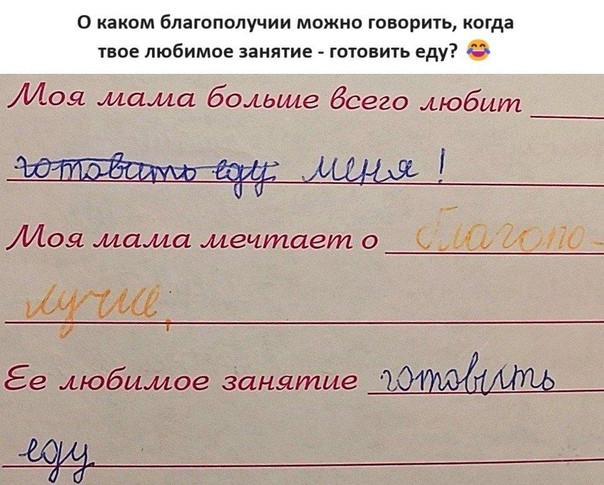 О каком благополучии можно говорить, когда
твое любимое занятие - готовить еду? 😂
Моя мама больше всего любит
готовить еду меня!
Моя мама мечтает о благопо-
лучие,
Ее любимое занятие готовить
еду